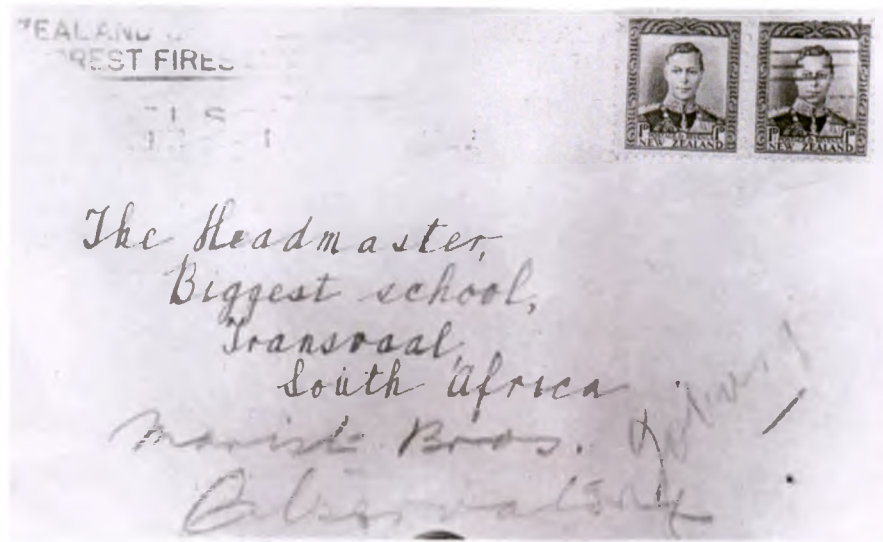 REST FIRES
1D 1D
NEW ZEALAND
1D 1D
NEW ZEALAND
The Headmaster,
Biggest school,
Transvaal,
South Africa
Marist Bros.
Observatory